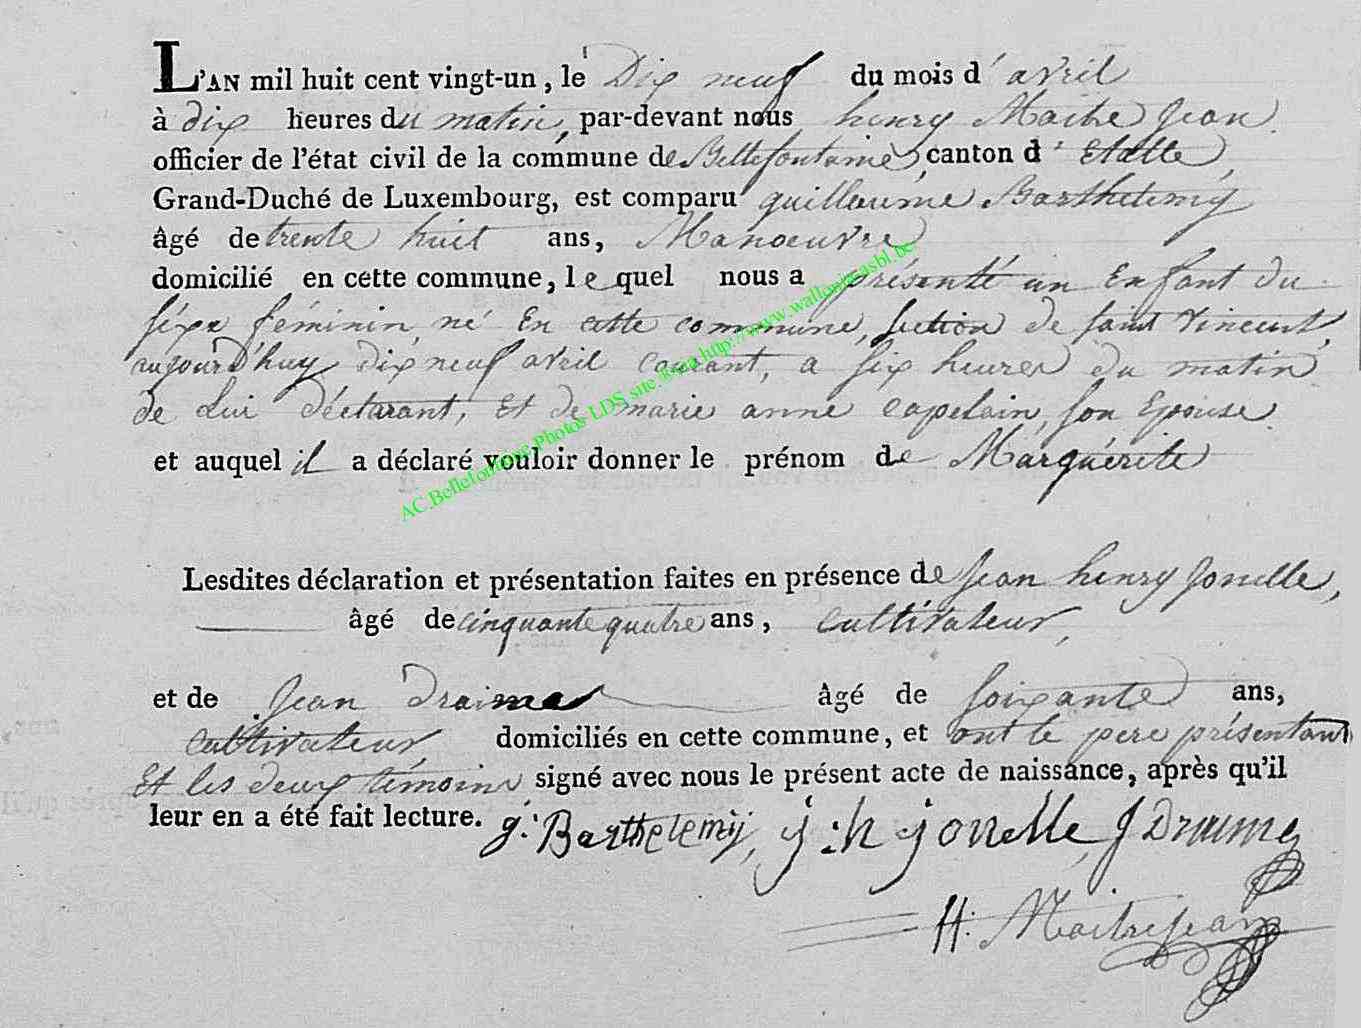 L'AN mil huit cent vingt-un, le Dix neuf du mois d' avril
à dix heures du matin, par-devant nous henry Maitre Jean
officier de l'état civil de la commune de Bellefontaine, canton d' Etalle,
Grand-Duché de Luxembourg, est comparu guillaume Barthelemy
âgé de trente huit ans, Manoeuvre
domicilié en cette commune, lequel nous a présenté un Enfant du
séxe féminin, né En cette commune, section de saint vincent,
aujourd'huy dix neuf avril courant, a six heures du matin
de Lui déclarant, Et de marie anne Capelain, son Epouse
et auquel il a déclaré vouloir donner le prénom de Marguérite
AC.Bellefontaine Photos LDS site http://www.wallonicasbl.be
Lesdites déclaration et présentation faites en présence de Jean henry Jonelle,
âgé de cinquante quatre ans, cultivateur,
et de Jean Draime âgé de soixante ans,
cultivateur, domiciliés en cette commune, et ont le pere présentant
Et les deux témoins signé avec nous le présent acte de naissance, après qu'il
leur en a été fait lecture. g. Barthelemÿ, j:h jonelle, J Draime
H. Maitrejean